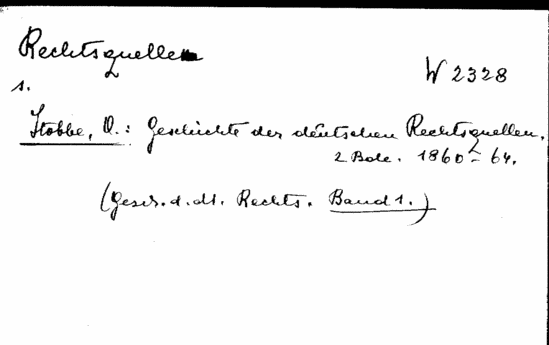 Rechtsquellen
W 2328
s.
Stobbe, O.: Geschichte der deutschen Rechtsquellen.
2 Bde. 1860-64.
(Gesch. d. dt. Rechts. Band 1.)